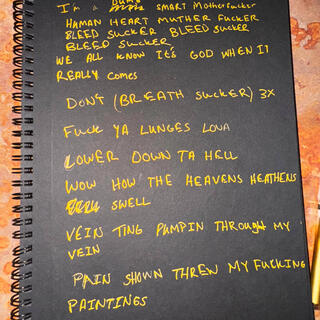 I'm a DUMB SMART Motherfucker
HUMAN HEART MUTHER FUCKER
BLEED SUCKER BLEED SUCKER
BLEED SUCKER
WE ALL KNOW IT'S GOD WHEN IT
REALLY COMES
DON'T (BREATH SUCKER) 3X
FUCK YA LUNGES LOVA
LOWER DOWN TA HELL
WOW HOW THE HEAVENS HEATHENS
SWELL
VEIN TING PUMPIN THROUGH MY
VEIN
PAIN SHOWN THREW MY FUCKING
PAINTINGS